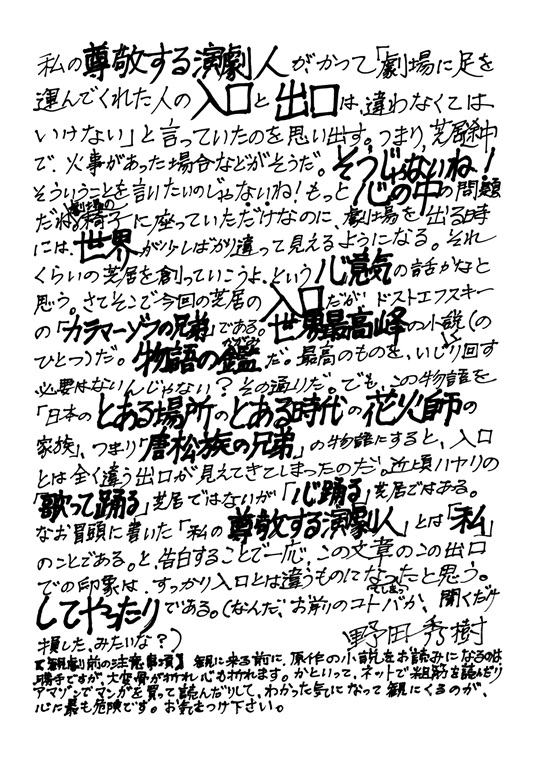 私の尊敬する演劇人がかつて「劇場に足を
運んでくれた人の入口と出口は、違わなくては
いけない」と言っていたのを思い出す。つまり、芝居中
で、火事があった場合などがそうだ。そうじゃないね!
そういうことを言いたいのじゃないね!もっと心の中の問題
だね。劇場の椅子に座っていただけなのに、劇場を出る時
には、世界が少しばかり違って見えるようになる。それ
くらいの芝居を創っていこうよ、という心意気の話かなと
思う。さてそこで今回の芝居の入口だが、ドストエフスキー
の「カラマーゾフの兄弟」である。世界最高峰の小説(の
ひとつ)だ。物語の鑑だ。最高のものを、いじり回す
必要はないんじゃない?その通りだ。でも、この物語を
「日本のとある場所のとある時代の花火師の
家族」、つまり「唐松族の兄弟」の物語にすると、入口
とは全く違う出口が見えてきてしまったのだ。近頃ハヤリの
「歌って踊る」芝居ではないが「心踊る」芝居ではある。
なお冒頭に書いた「私の尊敬する演劇人」とは「私」
のことである。と、告白することで一応、この文章のこの出口
での印象は、すっかり入口とは違うものになってしまったと思う。
してやったりである。(なんだ、お前のコトバか、聞くだけ
損した、みたいな?)
野田秀樹
【観劇前の注意事項】観に来る前に、原作の小説をお読みになるのは
勝手ですが、大変骨が折れ心も折れます。かといって、ネットで粗筋を読んだり
アマゾンでマンガを買って読んだりして、わかった気になって観にくるのが、
心に最も危険です。お気をつけ下さい。